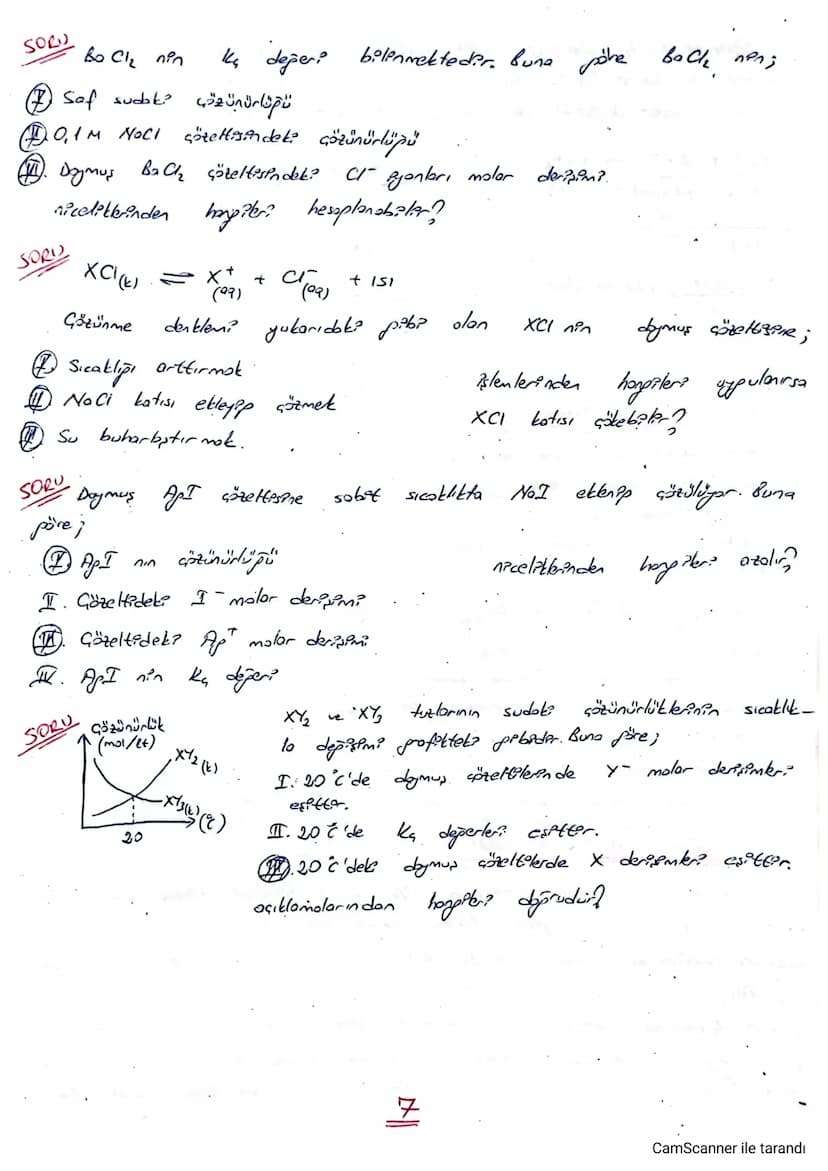 SORU BaCl2 nin Kç değeri bilinmektedir. Buna göre BaCl2 nin;
I Saf sudaki çözünürlüğü
II. 0,1 M NaCl çözeltisindeki çözünürlüğü
III. Doymuş BaCl2 çözeltisindeki Cl- iyonları molar derişimi.
niceliklerinden hangileri hesaplanabilir?
SORU XCl(k) ⇌ X+(aq) + Cl-(aq) + ISI
Çözünme denklemi yukarıdaki gibi olan XCl nin doymuş çözeltisine;
I Sıcaklığı arttırmak
II NaCl katısı ekleyip çözmek
III Su buharlaştırmak.
işlemlerinden hangileri uygulanırsa
XCl katısı çökebilir?
SORU Doymuş AgI çözeltisine sabit sıcaklıkta NaI eklenip çözülüyor. Buna
göre;
I AgI nın çözünürlüğü
niceliklerinden hangileri azalır?
II. Çözeltideki I- molar derişimi
III. Çözeltideki Ag+ molar derişimi
IV. AgI nin Kç değeri
SORU XY2 ve XY3 tuzlarının sudaki çözünürlüklerinin sıcaklık-
la değişimi grafikteki gibidir. Buna göre;
I. 20°C'de doymuş çözeltilerinde Y- molar derişimleri
eşittir.
II. 20°C'de Kç değerleri eşittir.
III. 20°C'deki doymuş çözeltilerde X derişimleri eşittir.
açıklamalarından hangileri doğrudur?
Çözünürlük
(mol/lt)
XY2(k)
XY3(k)
(°C)
20
7
CamScanner ile tarandı